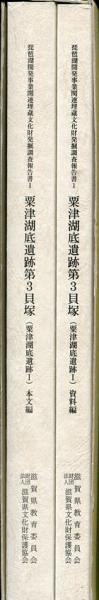 琵琶湖開発事業関連埋蔵文化財発掘調査報告書1
粟津湖底遺跡第3貝塚(粟津湖底遺跡Ⅰ)資料編
滋賀県教育委員会
財団法人 滋賀県文化財保護協会
琵琶湖開発事業関連埋蔵文化財発掘調査報告書1
粟津湖底遺跡第3貝塚(粟津湖底遺跡Ⅰ)本文編
滋賀県教育委員会
財団法人 滋賀県文化財保護協会